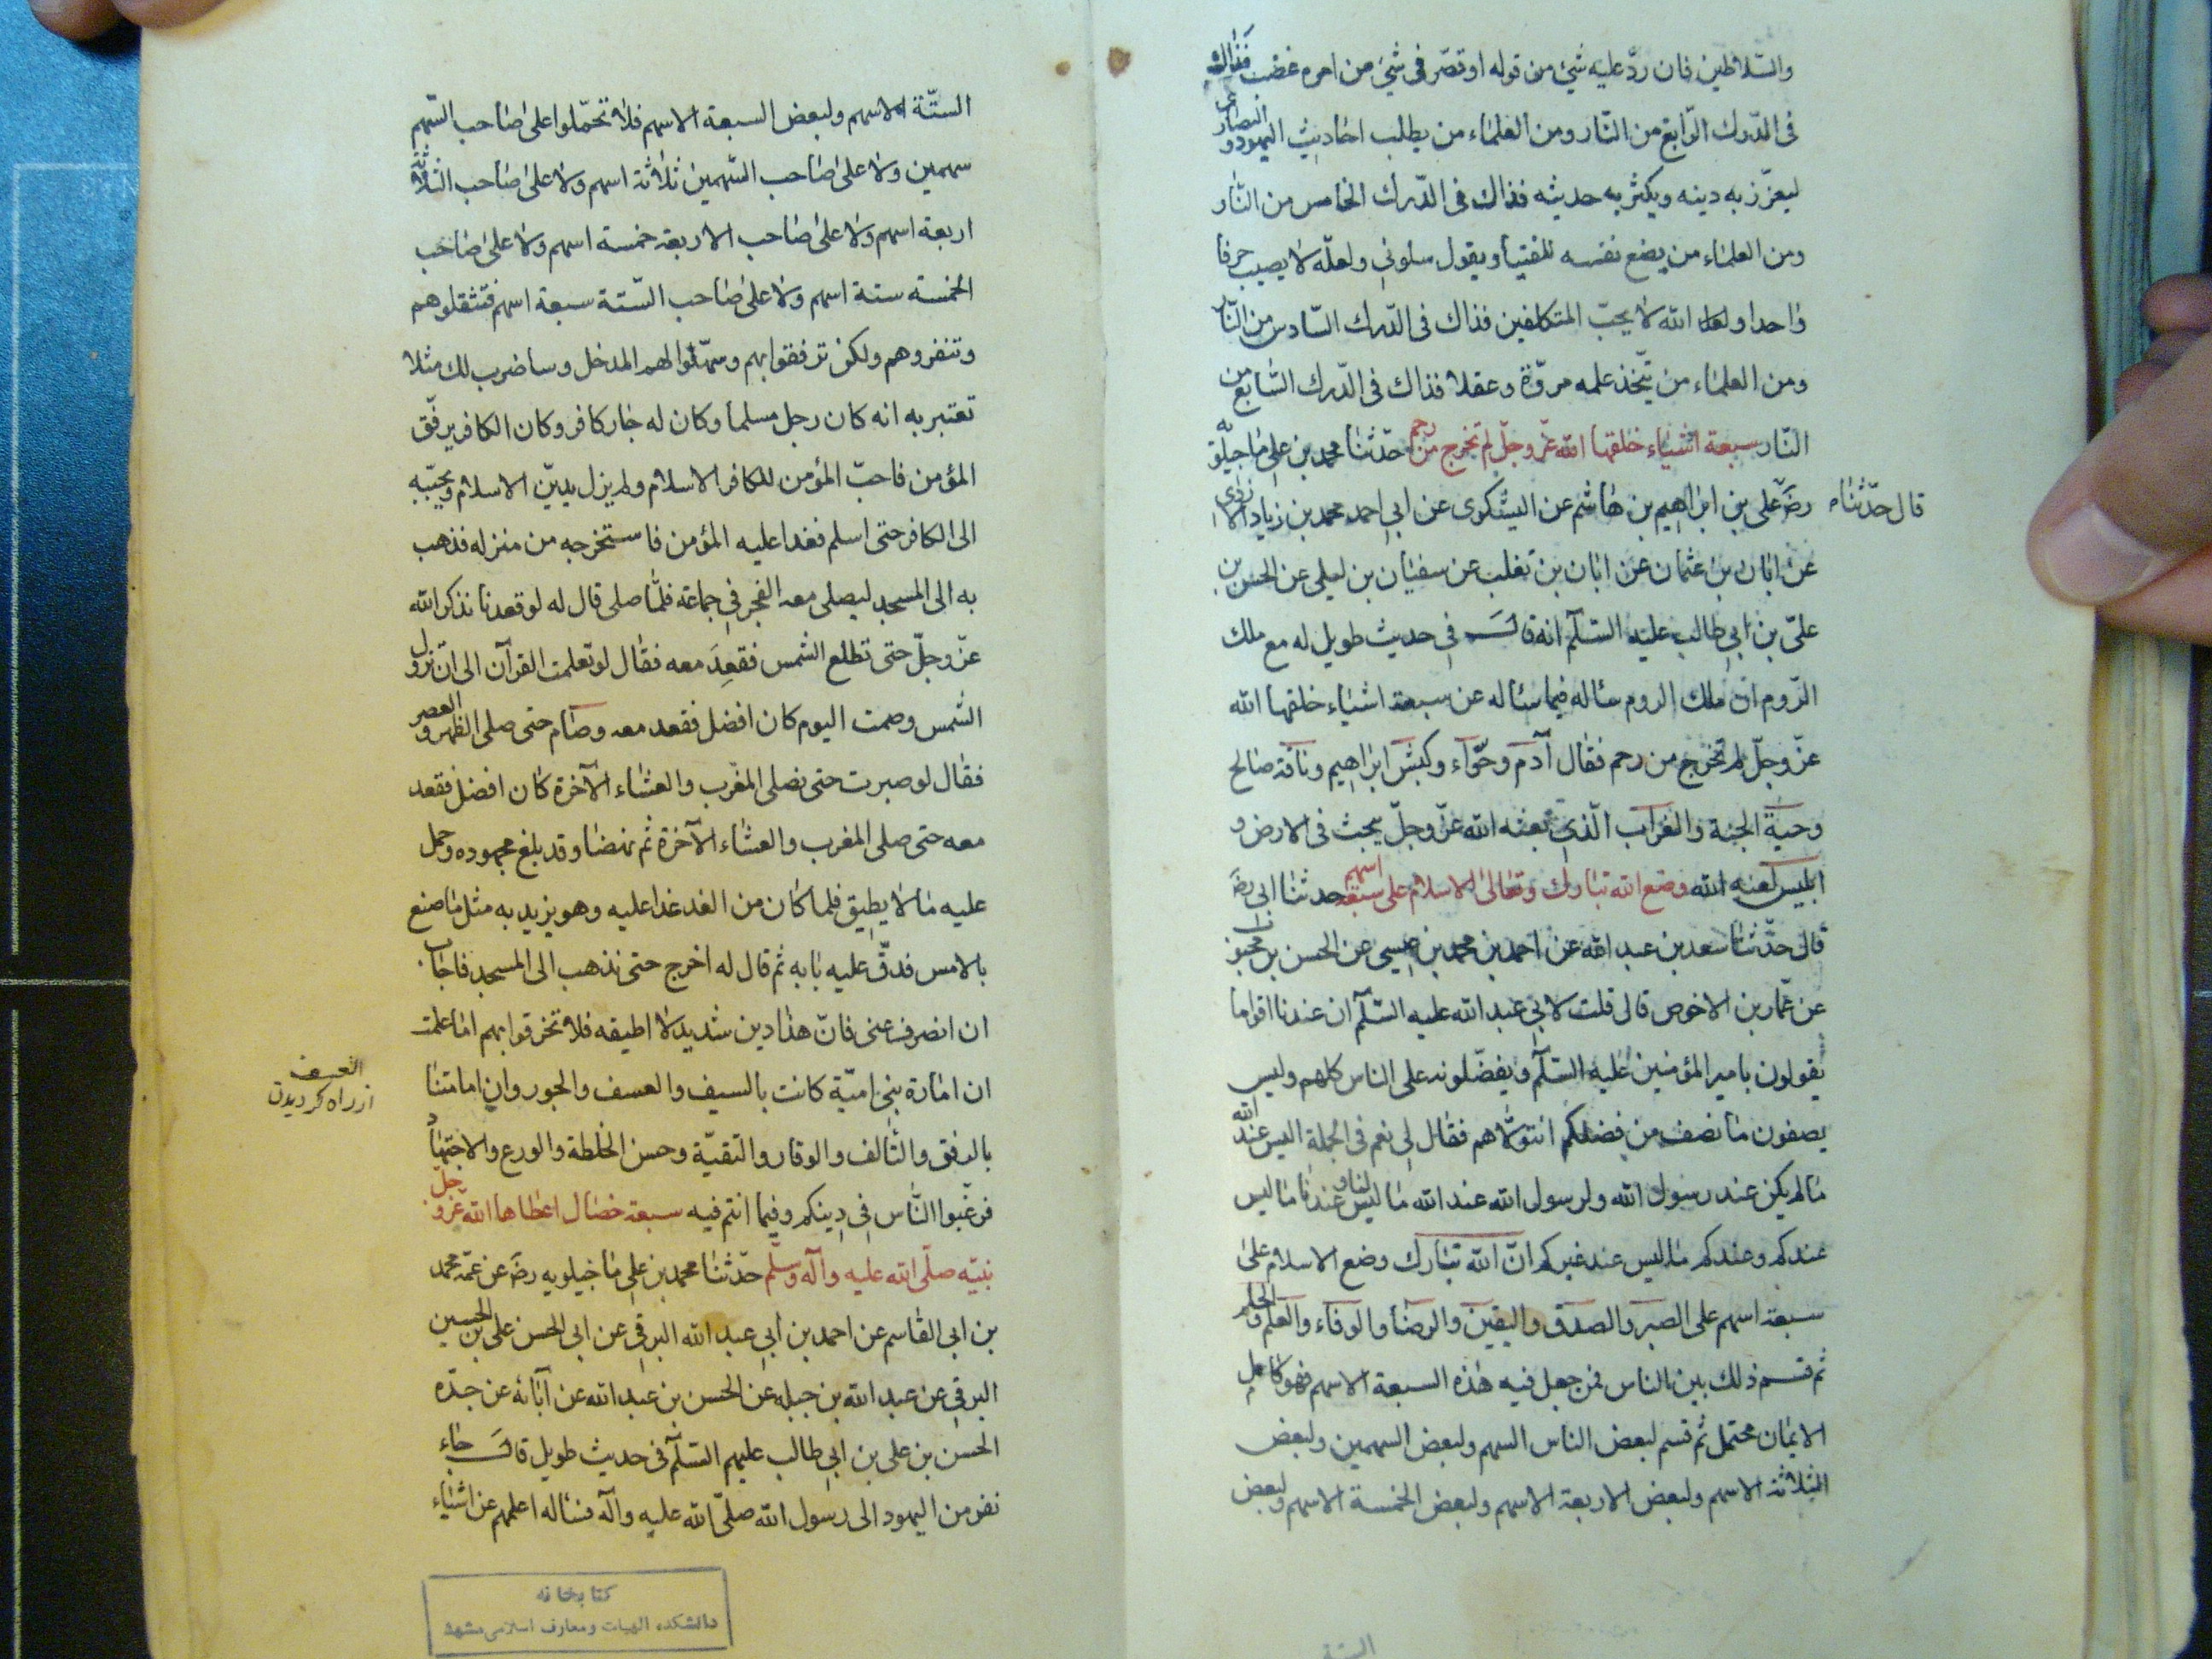 والسّلاطين فان ردّ عليه شئ من قوله او قصّر فى شئ من امره غضب فذاك
فى الدّرك الرّابع من النّار ومن العلماء من يطلب احاديث اليهود و النصارى
ليعزّز به دينه ويكثر به حديثه فذاك فى الدّرك الخامس من النّار
ومن العلماء من يضع نفسه للفتيا ويقول سلونى ولعلّه لا يصيب حرفا
واحدا و الله لا يحبّ المتكلفين فذاك فى الدّرك السّادس من النّار
ومن العلماء من يتّخذ علمه مروّة وعقلا فذاك فى الدّرك السّابع من
النّار سبعة اشياء خلقها الله عزّ وجلّ لم تخرج من رحم حدّثنا محمد بن على ماجيلويه
رضَ علىّ بن ابراهيم بن هاشم عن اليشكرى عن ابى احمد محمد بن زياد الازدى
قال حدّثنا
عن ابان بن عثمان عن ابان بن تغلب عن سفيان بن ليلى عن الحسن بن
علىّ بن ابى طالب عليه السّلم انه قال فى حديث طويل له مع ملك
الرّوم انّ ملك الروم ساله فيما ساله عن سبعة اشياء خلقها الله
عزّ وجلّ لم تخرج من رحم فقال آدم وحوّاء وكبش ابراهيم وناقة صالح
وحية الجنة والغراب الّذى بعثه الله عزّ وجلّ يبحث فى الارض و
ابليس لعنه الله وضع الله تبارك وتعالى الاسلام على سبعة اسهم حدثنا ابى رضَ
قال حدّثنا سعد بن عبد الله عن احمد بن محمد بن عيسى عن الحسن بن محبوب
عن عمّار بن الاحوص قال قلت لابى عبد الله عليه السّلم ان عندنا اقواما
يقولون بامير المؤمنين عليه السّلم ويفضّلونه على الناس كلهم وليس
يصفون ما نصف من فضلكم انتولّاهم فقال لى نعم فى الجملة اليس عند الله
ما لم يكن عند رسول الله ولرسول الله عند الله ما ليس لنا و عندنا ما ليس
عندكم وعندكم ما ليس عند غيركم انّ الله تبارك وضع الاسلام على
سبعة اسهم على الصبر والصدق واليقين والرضا والوفاء والعلم والحلم
ثم قسم ذلك بين الناس فمن جعل فيه هذه السبعة الاسهم فهو كامل
الايمان محتمل ثم قسم لبعض الناس السهم ولبعض السهمين ولبعض
الثلاثة الاسهم ولبعض الاربعة الاسهم ولبعض الخمسة الاسهم ولبعض
الستة
الستّة الاسهم ولبعض السبعة الاسهم فلا تحمّلوا على صاحب السّهم
سهمين ولا على صاحب السّهمين ثلاثة اسهم ولا على صاحب الثلاثة
اربعة اسهم ولا على صاحب الاربعة خمسة اسهم ولا على صاحب
الخمسة ستة اسهم ولا على صاحب السّتة سبعة اسهم فتثقلوهم
وتنفروهم ولكن ترفقوا بهم وسهّلوا لهم المدخل وساضرب لك مثلا
تعتبر به انه كان رجل مسلما وكان له جار كافر وكان الكافر يرفّق
المؤمن فاحبّ المؤمن للكافر الاسلام ولم يزل يزيّن الاسلام ويحبّبه
الى الكافر حتى اسلم فغدا عليه المؤمن فاستخرجه من منزله فذهب
به الى المسجد ليصلى معه الفجر فى جماعة فلمّا صلى قال له لو قعدنا نذكر الله
عزّ وجلّ حتى تطلع الشمس فقعد معه فقال لو تعلمت القرآن الى ان تزول
الشمس وصمت اليوم كان افضل فقعد معه وصام حتى صلى الظهر و العصر
فقال لو صبرت حتى نصلى المغرب والعشاء الآخرة كان افضل فقعد
معه حتى صلى المغرب والعشاء الآخرة ثم نهضا وقد بلغ مجهوده وحمل
عليه ما لا يطيق فلما كان من الغد غدا عليه وهو يزيد به مثل ما صنع
بالامس فدقّ عليه بابه ثم قال له اخرج حتى نذهب الى المسجد فاجاب
ان انصرف عنى فانّ هذا دين شديد لا اطيقه فلا تخرقوا بهم اما علمت
ان امارة بنى اميّة كانت بالسيف والعسف والجور وان امامتنا
العسف
از راه کردیدن
بالرفق والتالف والوقار والتقيّة وحسن الخلطة والورع والاجتهاد
فرغّبوا النّاس فى دينكم وفيما انتم فيه سبعة خصال اعطاها الله عزّ و جلّ
نبيّه صلّى الله عليه وآله وسلّم حدّثنا محمد بن على ماجيلويه رضَ عن عمّه محمد
بن ابى القاسم عن احمد بن ابى عبد الله البرقى عن ابى الحسن على بن الحسين
البرقى عن عبد الله بن جبله عن الحسن بن عبد الله عن آبائه عن جدّه
الحسن بن على بن ابى طالب عليهم السّلم فى حديث طويل قال جاء
نفر من اليهود الى رسول الله صلّى الله عليه وآله فساله اعلمهم عن اشياء
کتابخانه
دانشکده الهیات و معارف اسلامی مشهد